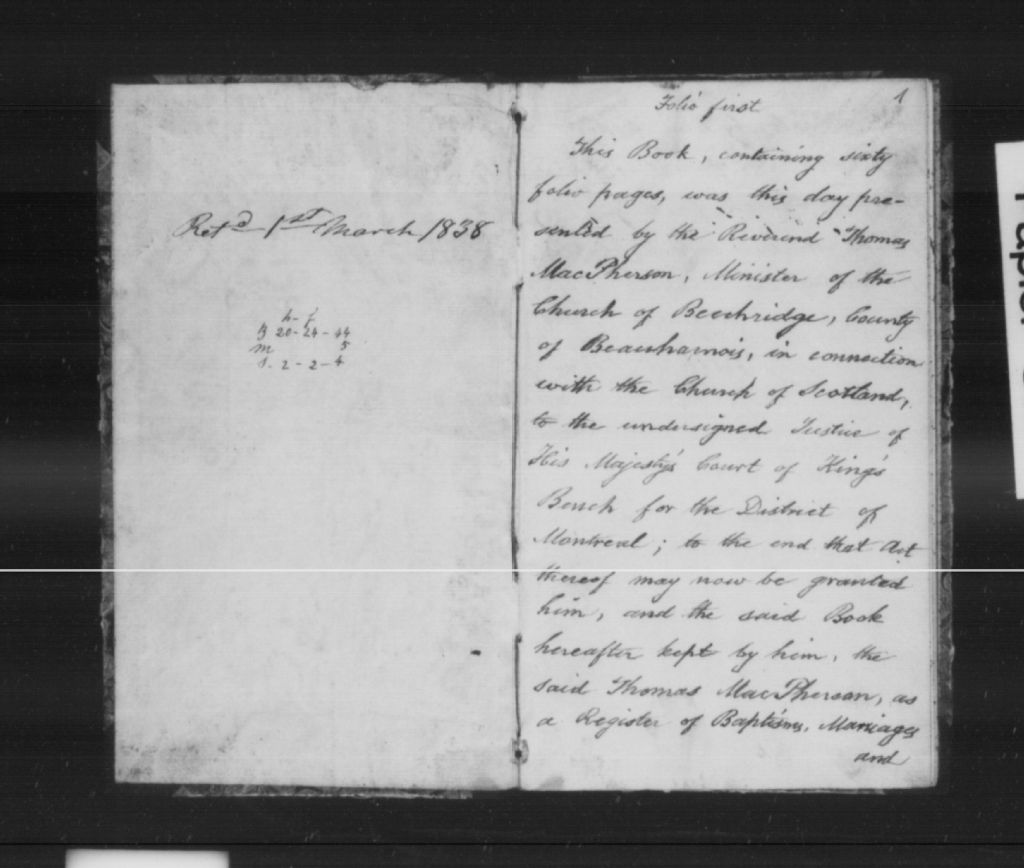 Retd 1st March 1838
B 20-24-44
m 5
S. 2-2-4
1
Folio first
This Book, containing sixty
folio pages, was this day pre-
sented by the Reverend Thomas
MacPherson, Minister of the
Church of Beechridge, County
of Beauharnois, in connection
with the Church of Scotland,
to the undersigned Justice of
His Majesty's Court of King's
Bench for the District of
Montreal; to the end that Act
thereof may now be granted
him, and the said Book
hereafter kept by him, the
said Thomas MacPherson, as
a Register of Baptisms, Marriages
and